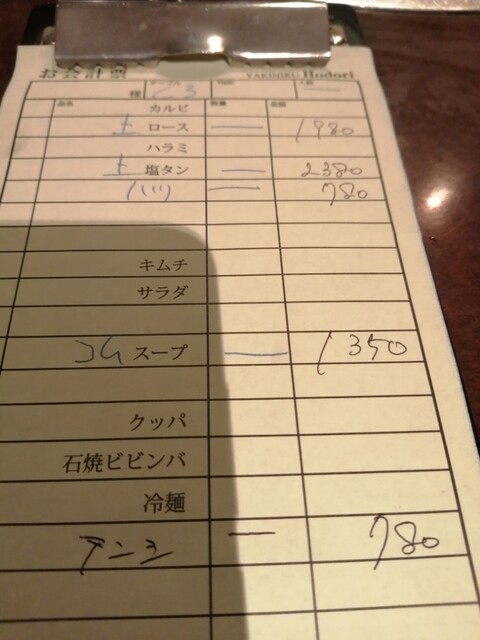 お会計票 YAKINIKU Hodori
様 テーブル 3 人数 一
品名 カルビ 数量 金額
上 ロース 一 1980
ハラミ
上 塩タン 一 2380
ハツ 一 780
キムチ
サラダ
コム スープ 一 1350
クッパ
石焼ビビンバ
冷麺
一 780